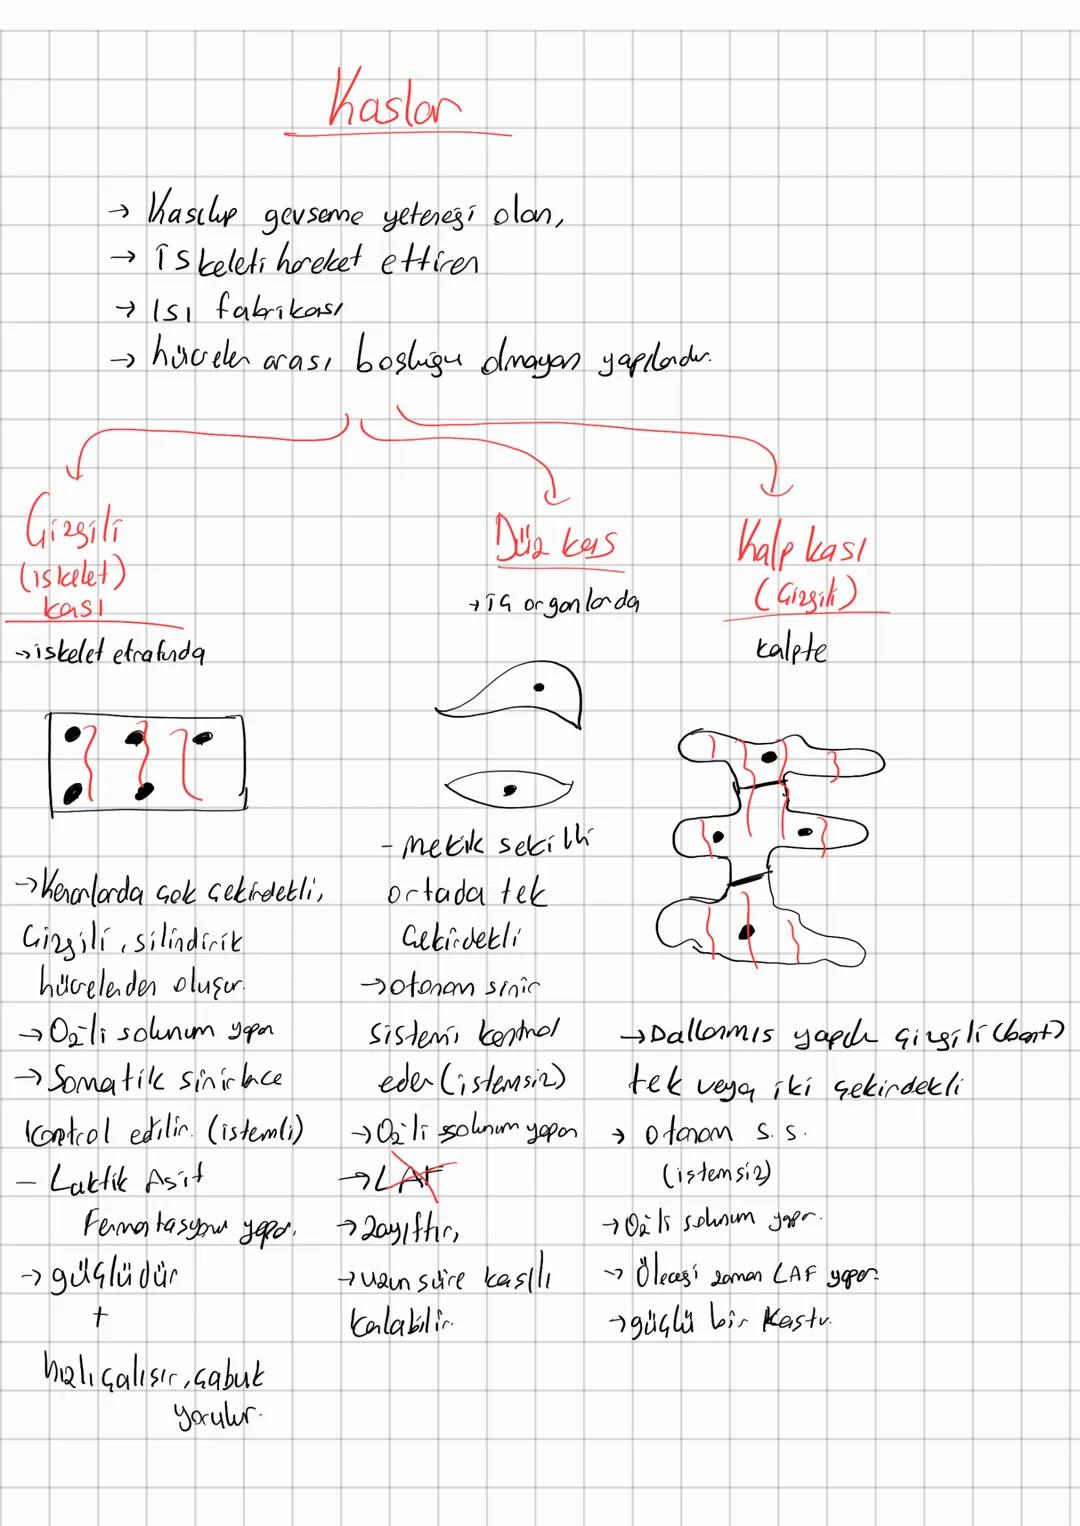 Kaslar
→ Kasılıp gevseme yeteneği olan,
→ İskeleti hareket ettiren
→ Isı fabrikası
→ hücreler arası boşluğu olmayan yapılardır.
Çizgili
(iskelet)
kası
→ iskelet etrafında
→ Kenarlarda çok çekirdekli,
Çizgili, silindirik
hücrelerden oluşur.
→ O2'li solunum yapar
→ Somatik sinirlerce
kontrol edilir. (istemli)
- Laktik Asit
Fermantasyonu yapar.
→ güçlüdür
+
hızlı çalışır, çabuk
yorulur.
Düz kas
→ iç organlarda
- mekik sekilli
ortada tek
Çekirdekli
→ otonom sinir
sistemi kontrol
eder (istemsiz)
→ O2'li solunum yapar
→ LAF
→ zayıftır,
→ uzun süre kasılı
kalabilir.
Kalp kası
(Çizgili)
kalpte
→ Dallanmıs yapılı çizgili (bant)
tek veya iki çekirdekli
→ otonom s.s.
(istemsiz)
→ O2'li solunum yapar.
→ Öleceği zaman LAF yapar.
→ güçlü bir kastır.